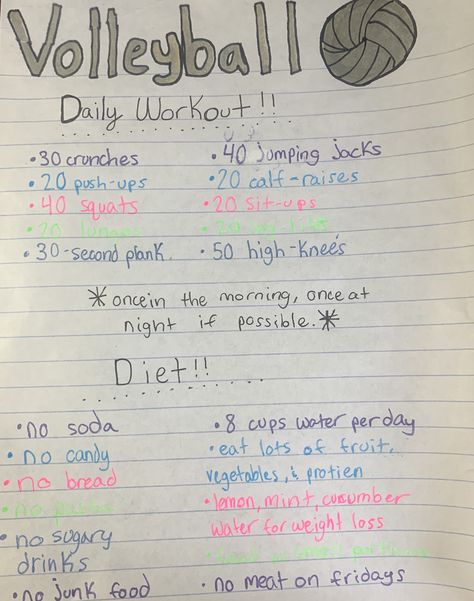 Volleyball
Daily Workout!!
• 30 crunches
• 20 push-ups
• 40 squats
• 20 lunges
• 30-second plank.
• 40 jumping jacks
• 20 calf-raises
• 20 sit-ups
• 20
• 50 high-knees
*once in the morning, once at
night if possible.*
Diet!!
• no soda
• no candy
• no bread
• no
• no sugary
drinks
• no junk food
• 8 cups water per day
• eat lots of fruit,
vegetables, & protien
• lemon, mint, cucumber
water for weight loss
• no meat on fridays